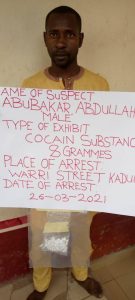 AME OF SUSPECT
ABUBAKAR ABDULLAH
MALE
TYPE OF EXHIBIT
COCAIN SUBSTANC
8 GRAMMES
PLACE OF ARREST
WARRI STREET KADU
DATE OF ARREST
26-03-2021